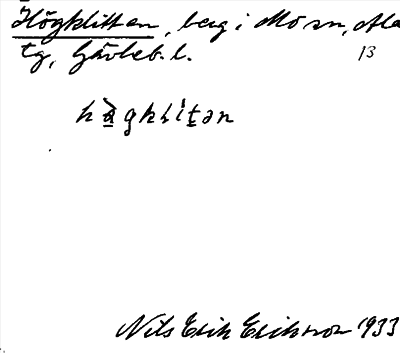 Högklitten, berg i Mo sn, Ala
tg, Gävleb. l.
13
Nils Erik Eriksson 1933